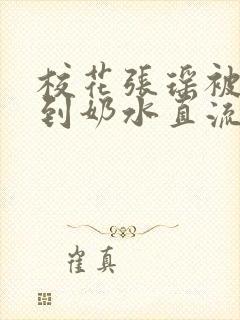 校花張瑶被
到奶水直流
崔真